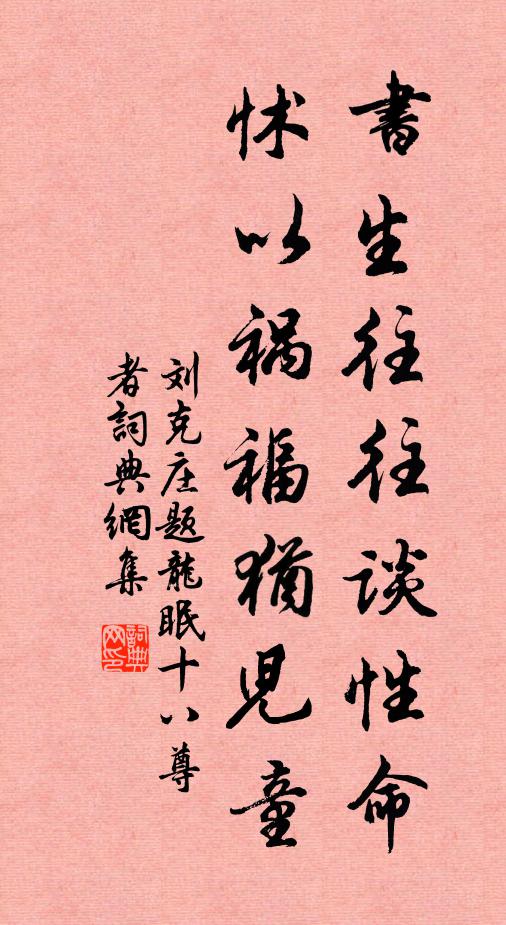 書生往往談性命
怵以祸福猶児童
刘克庄题龍眠十八尊
者詞典網集
詞典网印